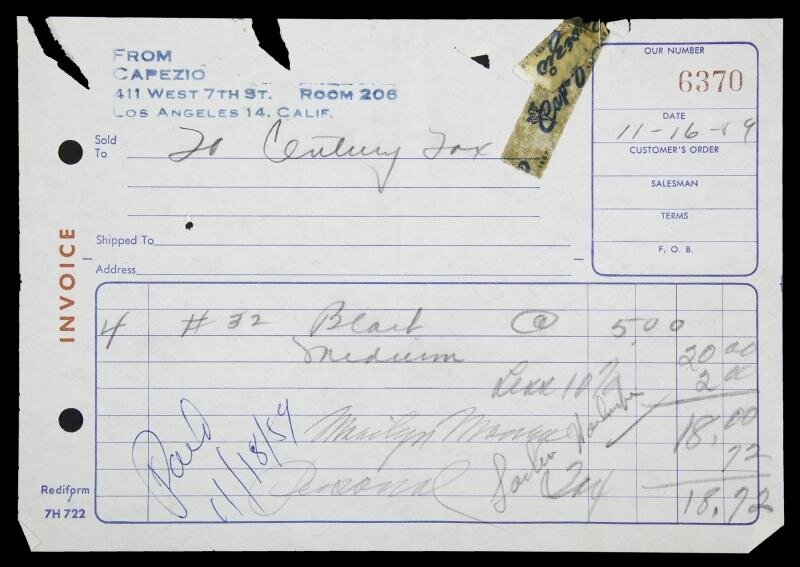 FROM
CAPEZIO
411 WEST 7TH ST. ROOM 206
LOS ANGELES 14, CALIF.
OUR NUMBER
6370
DATE
11-16-59
CUSTOMER'S ORDER
SALESMAN
TERMS
F. O. B.
Sold To 20 Century Fox
Shipped To
Address
INVOICE
4 #32 Black @ 5.00
Medium 20.00
Less 10% 2.00
Marilyn Monroe 18.00
Personal 72
Tax 18.72
Paid
11/18/59
Rediform
7H 722